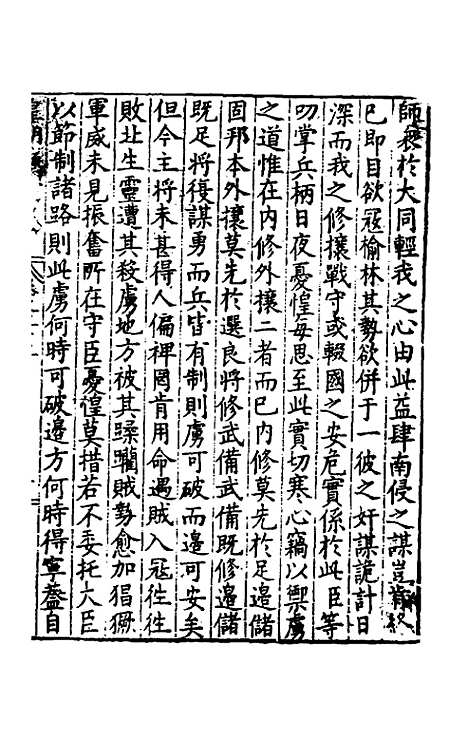 師衆於大同輕我之心由此益肆南侵之謀豈肯終
已即目欲寇榆林其勢欲併于一彼之奸謀詭計日
深而我之修攘戰守或輟國之安危實係於此臣等
叨掌兵柄日夜憂惶每思至此實切寒心竊以禦虜
之道惟在内修外攘二者而已内修莫先於足邉儲
固邦本外攘莫先於選良將修武備武備既修邉儲
既足將復謀勇而兵皆有制則虜可破而邉可安矣
但今主將未甚得人偏裨罔肯用命遇賊入寇徃徃
敗北生靈遭其殺虜地方被其蹂躪賊勢愈加猖獗
軍威未見振奮所在守臣憂惶莫措若不委托大臣
以節制諸路則此虜何時可破邉方何時得寧葢自